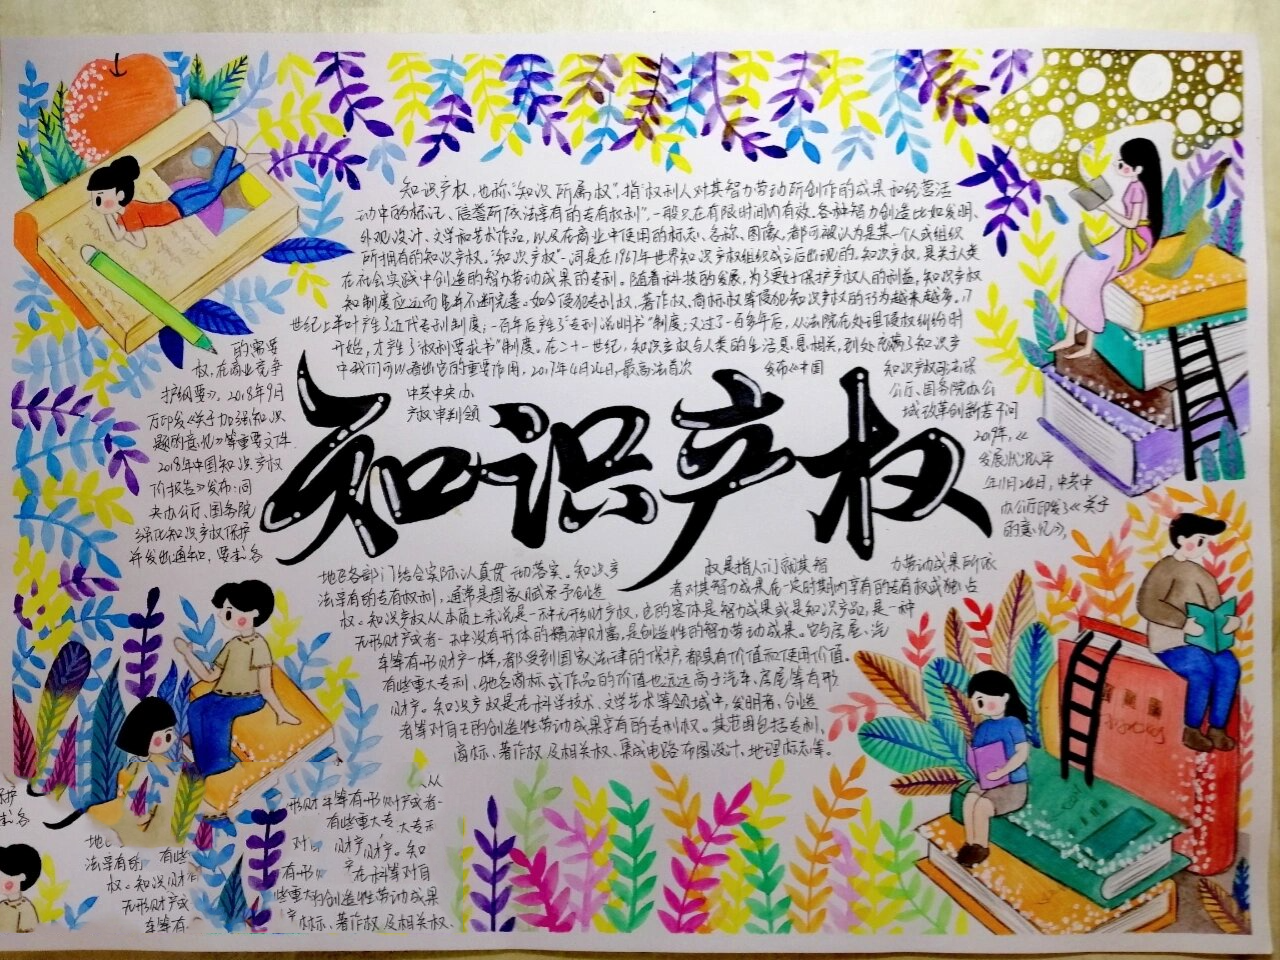 知识产权,也称"知识所属权",指"权利人对其智力劳动所创作的成果和经营活
动中的标记、信誉所依法享有的专有权利",一般只在有限时间内有效。各种智力创造比如发明、
外观设计、文学和艺术作品,以及在商业中使用的标志、名称、图像,都可被认为是某一个人或组织
所拥有的知识产权。"知识产权"一词是在1967年世界知识产权组织成立后出现的。知识产权,是关于人类
在社会实践中创造的智力劳动成果的专利。随着科技的发展,为了更好保护产权人的利益,知识产权
知制度应运而生并不断完善。如今侵犯专利权、著作权、商标权等侵犯知识产权的行为越来越多。17
世纪上半叶产生了近代专利制度;一百年后产生了"专利说明书"制度;又过了一百多年后,从法院在处理侵权纠纷时
开始,才产生了"权利要求书"制度。在二十一世纪,知识产权与人类的生活息息相关,到处充满了知识产
的需要
权,在商业竞争
中我们可以看出它的重要作用,2017年4月24日,最高法首次
发布《中国
知识产权司法保
护纲要》。2018年9月
中共中央办
公厅、国务院办公
万印发《关于加强知识
产权审判领
域改革创新若干问
题的意见》等重要文件
2019年,《
2018年中国知识产权
发展状况评
价报告》发布;同
年11月24日,中共中
央办公厅、国务院
办公厅印发了《关于
强化知识产权保护
的意见》,
并发出通知,要求各
知识产权
地区各部门结合实际认真贯
彻落实。知识产
权是指人们就其智
力劳动成果所依
法享有的专有权利,通常是国家赋予创造
者对其智力成果在一定时期内享有的专有权或独占
权。知识产权从本质上来说是一种无形财产权,它的客体是智力成果或是知识产品,是一种
无形财产或者一种没有形体的精神财富,是创造性的智力劳动成果。它与房屋、汽
车等有形财产一样,都受到国家法律的保护,都具有价值和使用价值。
有些重大专利、驰名商标或作品的价值也远远高于汽车、房屋等有形
财产。知识产权是在科学技术、文学艺术等领域中,发明者、创造
者等对自己的创造性劳动成果享有的专利权。其范围包括专利、
商标、著作权及相关权、集成电路布图设计、地理标志等。
从
形财
车等有形财产或者一
有些重大专
大专利
财产。知
有形
产在科等对自
些重大
创造性劳动成果
标、著作权及相关权、
护
求各
地
法享有的
有些
权。知识财产
无形财产或
车等有